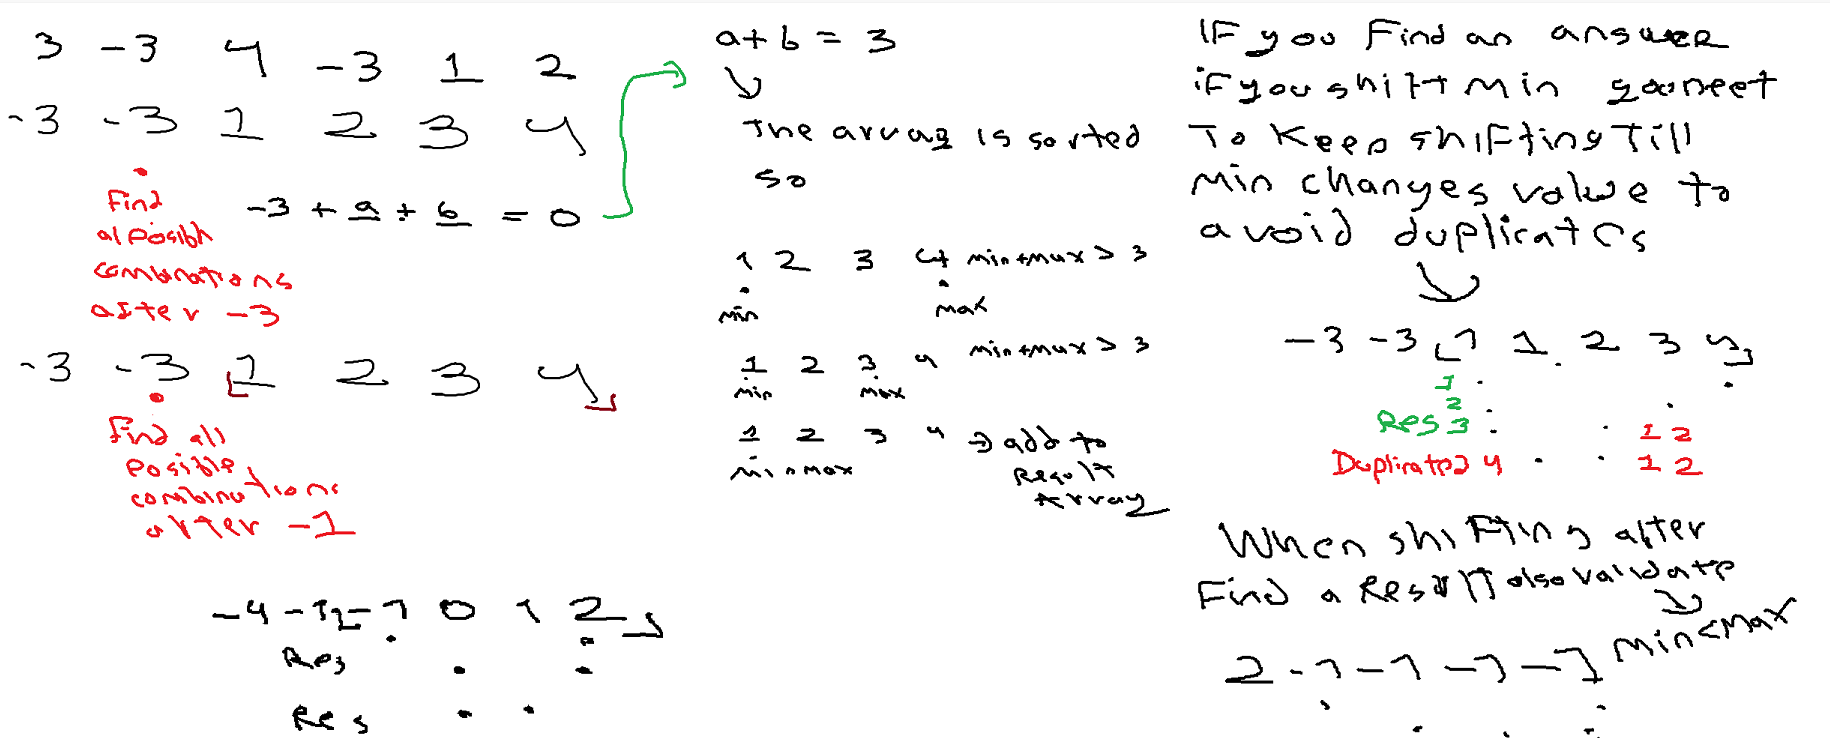 3 -3 4 -3 1 2
-3 -3 1 2 3 4
Find
al Posibl
combinations
after -3
-3 + a + b = 0
-3 -3 [1 2 3 4]
Find all
Posible
combinations
after -1
-4 -1 [-1 0 1 2]
Res
Res
a+b = 3
The array is sorted
so
1 2 3 4 min+max > 3
min max
1 2 3 4 min+max > 3
min max
1 2 3 4 → add to
min max Result
Array
IF you Find an answer
if you shift min
To Keep shifting Till
Min changes value to
avoid duplicates
-3 -3 [1 1 2 3 4]
1
2
Res 3 1 2
Duplicated 4 1 2
When shifting after
Find a Result also validate
min<Max
2 -1 -1 -1 -1